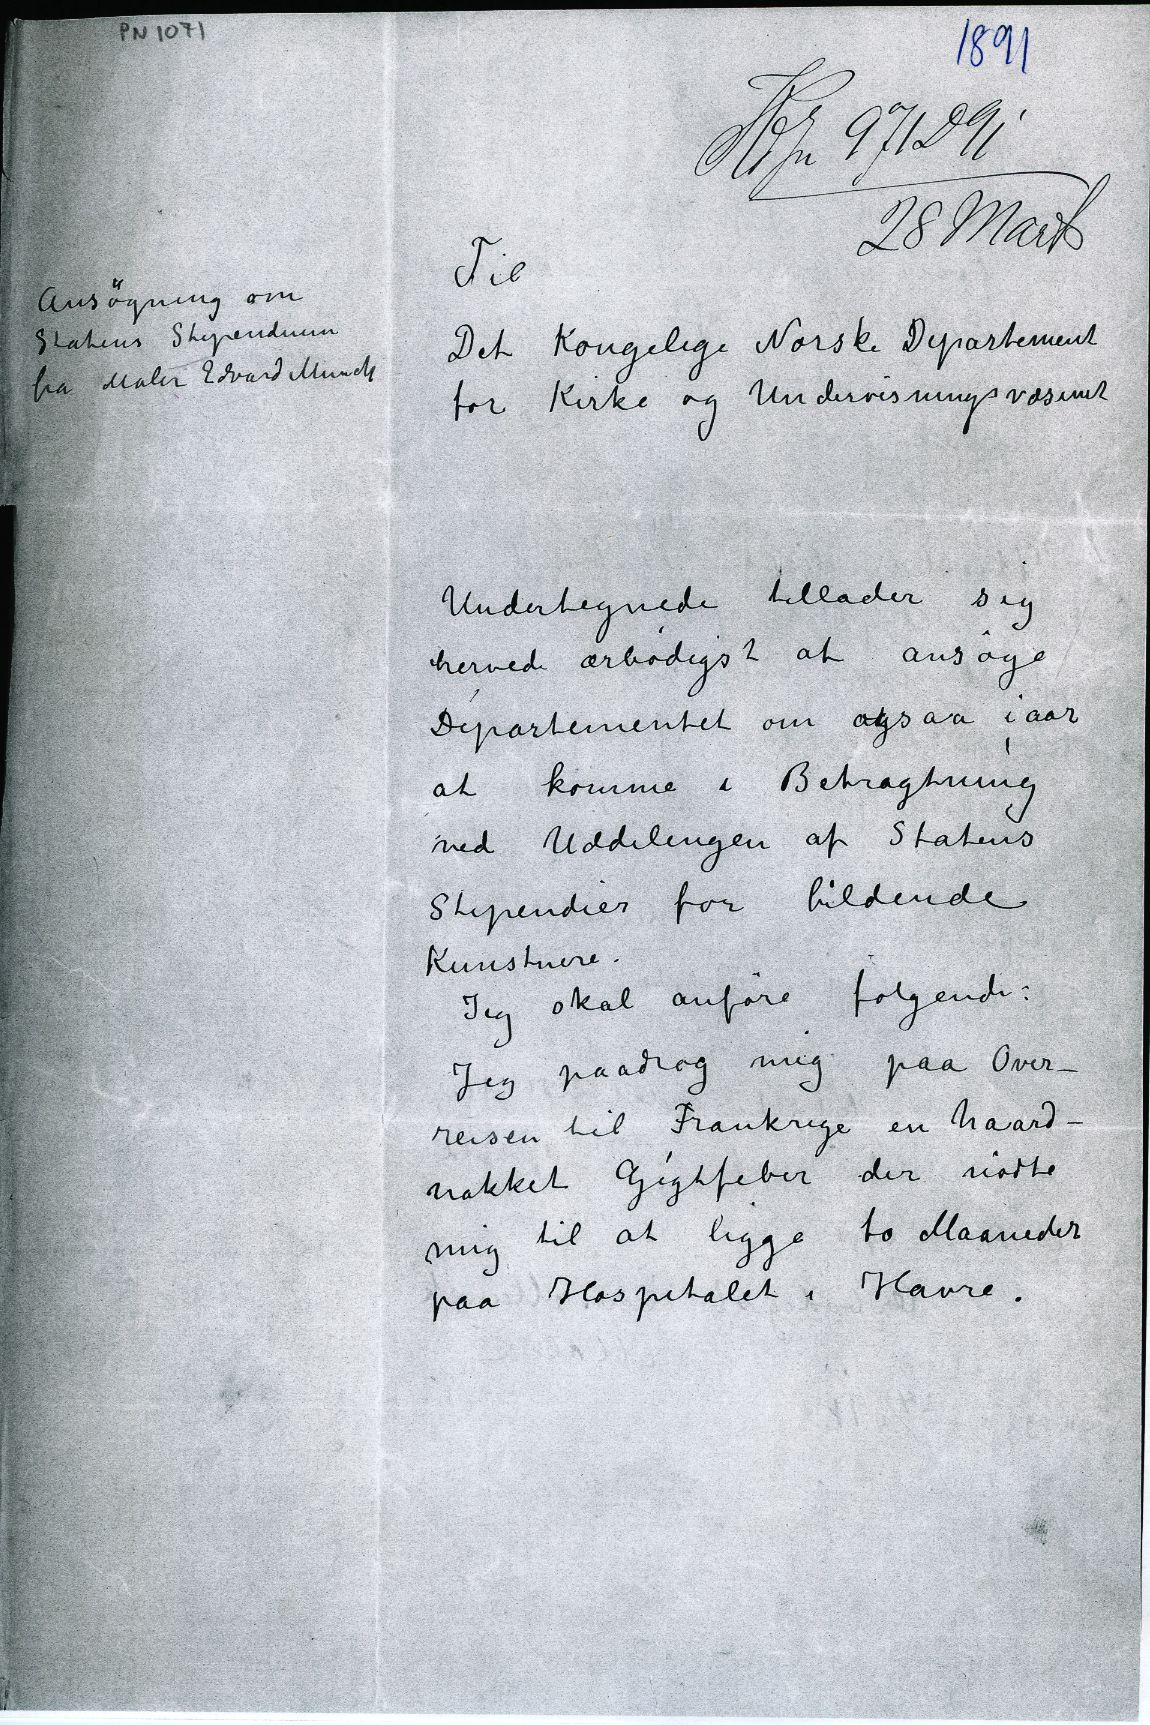 PN 1071
1891
971 D 91
28 Marts
Ansögning om
Statens Stipendium
fra Maler Edvard Munch
Til
Det Kongelige Norske Departement
for Kirke og Undervisningsvæsenet
Undertegnede tillader sig
herved ærbödigst at ansöge
Departementet om ogsaa iaar
at komme i Betragtning
ved Uddelingen af Statens
Stipendier for bildende
Kunstnere.
Jeg skal anföre fölgende:
Jeg paadrog mig paa Over-
reisen til Frankrige en haard-
nakket Gigtfeber der nödte
mig til at ligge to Maaneder
paa Hospitalet i Havre.